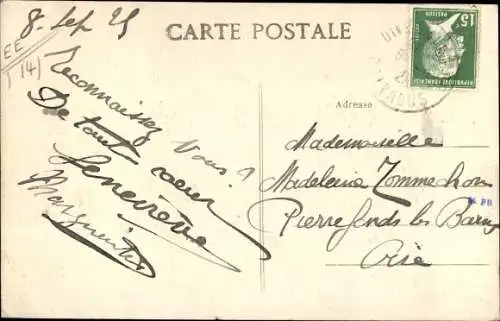 8 - Sept 25
CARTE POSTALE
15c
POSTES
PASTEUR
REPUBLIQUE FRANÇAISE
CALVADOS
EE
(14)
Reconnaissez Vous ?
De tout coeur
Geneviève
Marguerite
Adresse
Mademoiselle
Madeleine
Pierrefonds les Bains
Oise